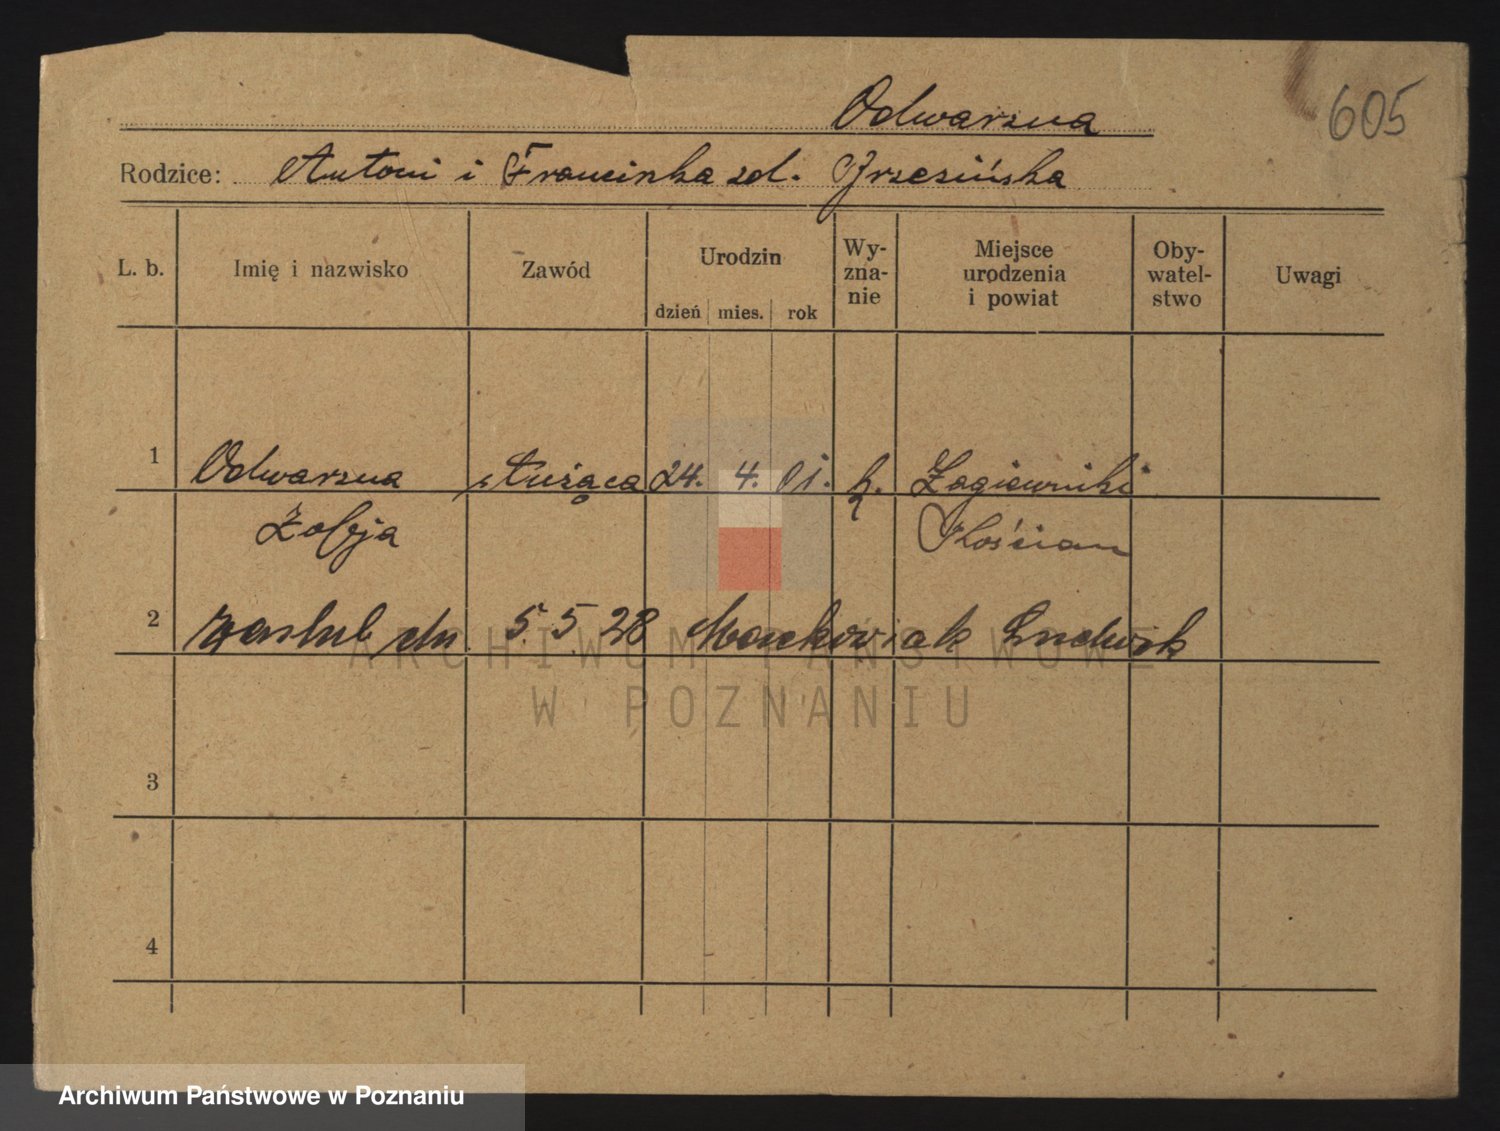 605
Odwarzna
Rodzice: Antoni i Franciszka zd. Brzezińska
L. b. Imię i nazwisko Zawód Urodzin dzień mies. rok Wy-zna-nie Miejsce urodzenia i powiat Oby-watel-stwo Uwagi
1 Odwarzna służąca 24. 4. 01. k. Łagiewniki
Zofja Kościan
2 zaślub dn. 5.5.28 Ludwik
3
4
ARCHIWUM PAŃSTWOWE
W POZNANIU
Archiwum Państwowe w Poznaniu